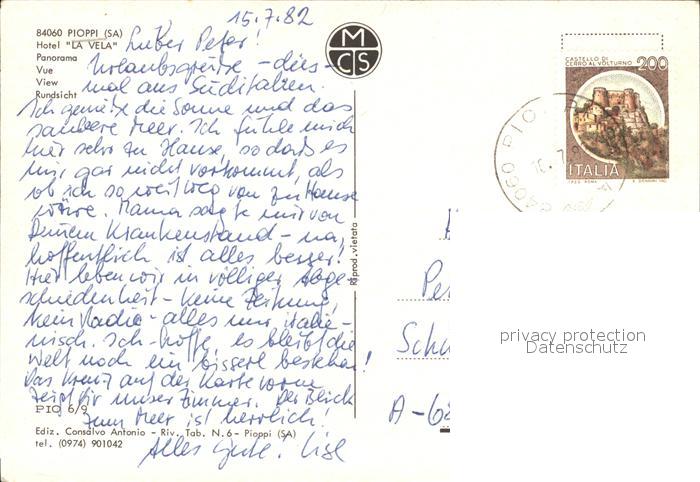 15.7.82
84060 PIOPPI (SA)
Hotel "LA VELA"
Panorama
Vue
View
Rundsicht
Lieber Peter!
Urlaubsgrüße - dies-
mal aus Süditalien.
Ich genieße die Sonne und das
saubere Meer. Ich fühle mich
hier sehr zu Hause, so daß es
mir gar nicht vorkommt, als
ob ich so weit weg von zu Hause
wäre. Mama sagte mir von
Deinem Krankenstand - na,
hoffentlich ist alles besser!
Hier leben wir in völliger Abge-
schiedenheit - keine Zeitung,
kein Radio - alles nur italie-
nisch. Ich hoffe, es bleibt die
Welt noch ein bisserl bestehen!
Das Kreuz auf der Karte vorne
zeigt Dir unser Zimmer. Der Blick
PIO 6/9
zum Meer ist herrlich!
Ediz. Consalvo Antonio - Riv. Tab. N. 6 - Pioppi (SA)
tel. (0974) 901042
Alles Gute. Lisl
MCS
Riprod. vietata
CASTELLO DI
CERRO AL VOLTURNO
200
ITALIA
I.P.Z.S. ROMA
84060 PIO
Pe
Sch
A-6
privacy protection
Datenschutz